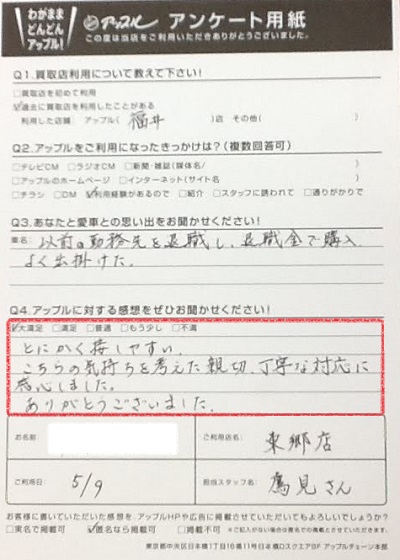 わがまま
どんどん
アップル!
アップル アンケート用紙
この度は当店をご利用いただきありがとうございました。
Q1.買取店利用について教えて下さい!
□買取店を初めて利用
☑過去に買取店を利用したことがある
利用した店舗 アップル( 福井 )店 その他( )
Q2.アップルをご利用になったきっかけは?(複数回答可)
□テレビCM □ラジオCM □新聞・雑誌(媒体名/ )
□アップルのホームページ □インターネット(サイト名 )
□チラシ □DM ☑利用経験があるので □紹介 □スタッフに誘われて □通りがかりで
Q3.あなたと愛車との思い出をお聞かせください!
車名 以前の勤務先を退職し、退職金で購入
よく出掛けた.
Q4.アップルに対する感想をぜひお聞かせください!
☑大満足 □満足 □普通 □もう少し □不満
とにかく接しやすい.
こちらの気持ちを考えた親切、丁寧な対応に
感心しました。
ありがとうございました.
お名前
ご利用店名 東郷店
ご利用日 5/9
担当スタッフ名 鷹見さん
お客様に書いていただいた感想をアップルHPや広告に掲載させていただいてもよろしいでしょうか?
□実名で掲載可 ☑匿名なら掲載可 □掲載不可 ※ご記入がない場合は匿名での掲載とさせていただきます。
東京都中央区日本橋1丁目16番11号日本橋ロクスクエア8F アップルチェーン本部